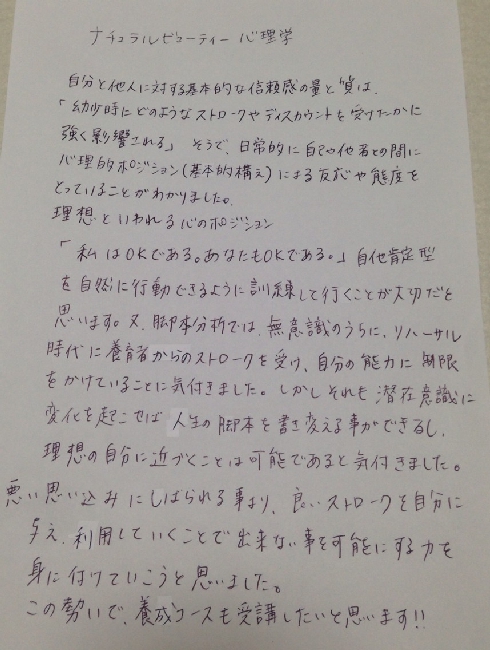 ナチュラルビューティー心理学
自分と他人に対する基本的な信頼感の量と質は、
「幼少時にどのようなストロークやディスカウントを受けたかに
強く影響される」そうで、日常的に自己や他者との間に
心理的ポジション(基本的構え)による反応や態度を
とっていることがわかりました。
理想といわれる心のポジション
「私はOKである。あなたもOKである。」自他肯定型
を自然に行動できるように訓練して行くことが大切だと
思います。又、脚本分析では、無意識のうちに、リハーサル
時代に養育者からのストロークを受け、自分の能力に制限
をかけていることに気付きました。しかしそれも潜在意識に
変化を起こせば人生の脚本を書き変える事ができるし、
理想の自分に近づくことは可能であると気付きました。
悪い思い込みにしばられる事より、良いストロークを自分に
与え、利用していくことで出来ない事を可能にする力を
身に付けていこうと思いました。
この勢いで、養成コースも受講したいと思います!!